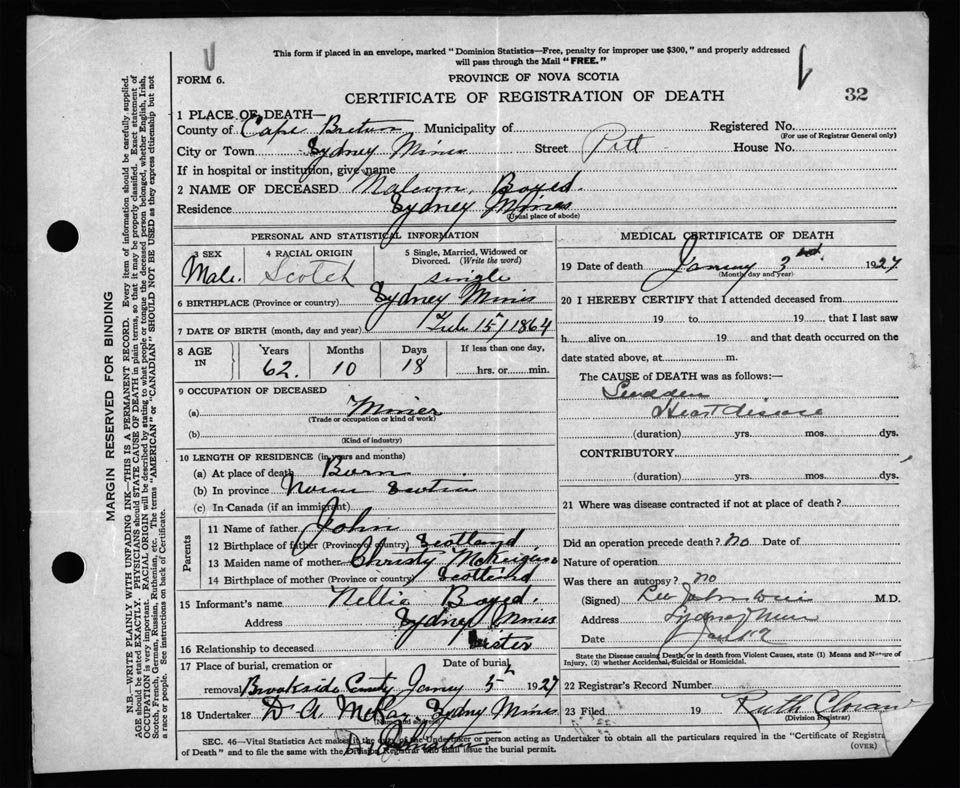 This form if placed in an envelope, marked "Dominion Statistics—Free, penalty for improper use $300," and properly addressed
will pass through the Mail "FREE."
FORM 6.
PROVINCE OF NOVA SCOTIA
CERTIFICATE OF REGISTRATION OF DEATH
32
1 PLACE OF DEATH—
County of Cape Breton Municipality of Registered No.
(For use of Registrar General only)
City or Town Sydney Mines Street Pitt House No.
If in hospital or institution, give name
2 NAME OF DECEASED Malcom Boyd.
Residence Sydney Mines
(Usual place of abode)
PERSONAL AND STATISTICAL INFORMATION
3 SEX 4 RACIAL ORIGIN 5 Single, Married, Widowed or Divorced. (Write the word)
Male. Scotch single
6 BIRTHPLACE (Province or country) Sydney Mines
7 DATE OF BIRTH (month, day and year) 15 / 1864
8 AGE IN Years Months Days If less than one day,
62. 10 18 hrs. or min.
9 OCCUPATION OF DECEASED
(a) Miner
(Trade or occupation or kind of work)
(b)
(Kind of industry)
10 LENGTH OF RESIDENCE (in years and months)
(a) At place of death Born
(b) In province Nova Scotia
(c) In Canada (if an immigrant)
Parents
11 Name of father John
12 Birthplace of father (Province or country) Scotland
13 Maiden name of mother Christy
14 Birthplace of mother (Province or country) Scotland
15 Informant's name Nellie Boyd.
Address Sydney Mines
16 Relationship to deceased sister
17 Place of burial, cremation or Date of burial
removal Brookside 5th 1927
18 Undertaker D A McKay Sydney Mines
(Name and address)
MEDICAL CERTIFICATE OF DEATH
19 Date of death 3 1927
(Month, day and year)
20 I HEREBY CERTIFY that I attended deceased from
19 to 19 that I last saw
h alive on 19 and that death occurred on the
date stated above, at m.
The CAUSE of DEATH was as follows:—
Sudden
Heart disease
(duration) yrs. mos. dys.
CONTRIBUTORY
(duration) yrs. mos. dys.
21 Where was disease contracted if not at place of death?
Did an operation precede death? no Date of
Nature of operation
Was there an autopsy? no
(Signed) M.D.
Address Sydney Mines
Date
State the Disease causing Death, or in death from Violent Causes, state (1) Means and Nature of
Injury, (2) whether Accidental, Suicidal or Homicidal.
22 Registrar's Record Number
23 Filed 19 Ruth
(Division Registrar)
SEC. 46—Vital Statistics Act makes it the duty of the Undertaker or person acting as Undertaker to obtain all the particulars required in the "Certificate of Registra
of Death" and to file the same with the Division Registrar who shall issue the burial permit.
(OVER)
MARGIN RESERVED FOR BINDING
N.B.—WRITE PLAINLY WITH UNFADING INK—THIS IS A PERMANENT RECORD. Every item of information should be carefully supplied.
AGE should be stated EXACTLY. PHYSICIANS should STATE CAUSE OF DEATH in plain terms, so that it may be properly classified. Exact statement of
OCCUPATION is very important. RACIAL ORIGIN will be described by stating to what people or tongue the deceased person belonged, whether English, Irish,
Scotch, French, German, Russian, Ruthenian, etc. The terms "AMERICAN" or "CANADIAN" SHOULD NOT BE USED as they express citizenship but not
a race or people. See instructions on back of Certificate.